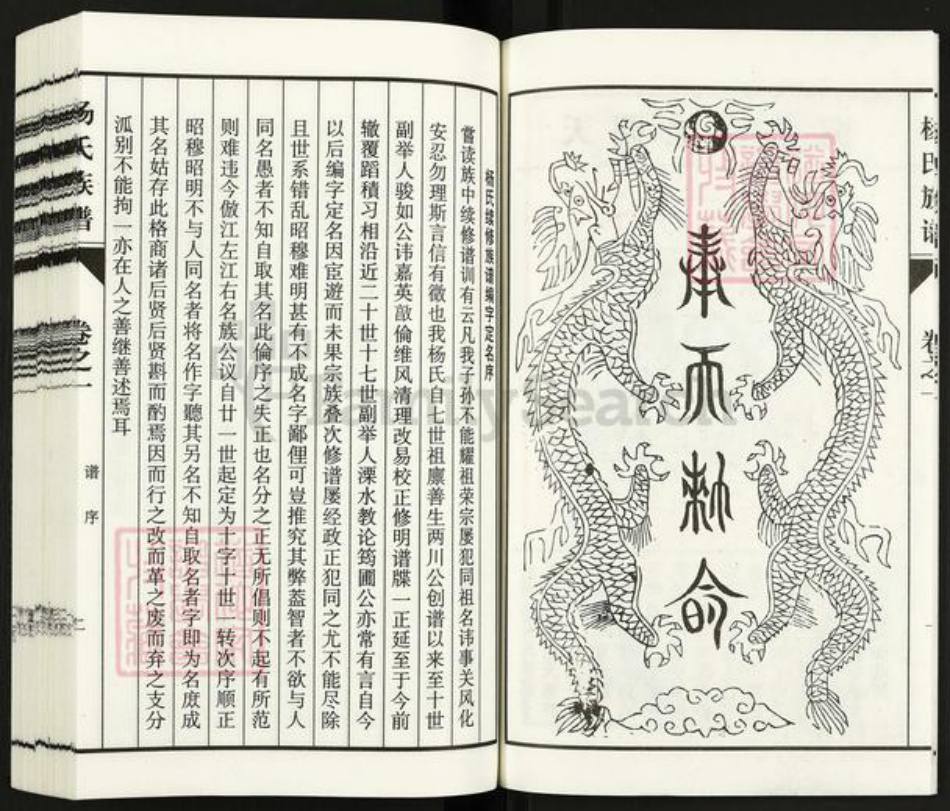 奉天勅命
杨氏续修族谱编字定名序
嘗读族中续修谱训有云凡我子孙不能耀祖荣宗屡犯同祖名讳事关风化
安忍勿理斯言信有徵也我杨氏自七世祖廪善生两川公创谱以来至十世
副举人骏如公讳嘉英敵倫维风清理改易校正修明谱牒一正延至于今前
辙覆蹈積习相沿近二十世十七世副举人溧水教论筠圃公亦常有言自今
以后编字定名因宦遊而未果宗族叠次修谱屡经政正犯同之尤不能尽除
且世系错乱昭穆难明甚有不成名字鄙俚可豈推究其弊蓋智者不欲与人
同名愚者不知自取其名此倫序之失正也名分之正无所倡则不起有所范
则难违今倣江左江右名族公议自廿一世起定为十字十世一转次序顺正
昭穆昭明不与人同名者将名作字聽其另名不知自取名者字即为名庶成
其名姑存此格商诸后贤后贤斟而酌焉因而行之改而革之废而弃之支分
派别不能拘一亦在人之善继善述焉耳
杨氏族谱
卷之一
谱序
二
杨氏族谱
卷之一
FamilySearch